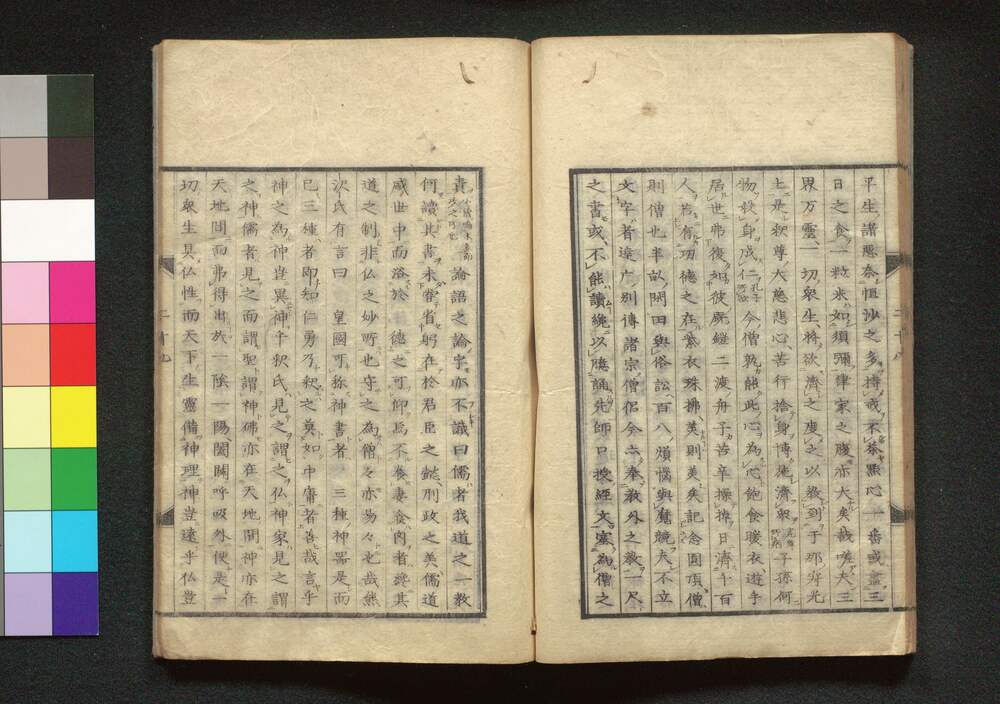 平生諸悪奈恒沙之多持戒不茶点心一番或盖三
日之食一粒米如須彌律家之腹亦大矣哉嗟夫三
界万霊一切衆生將欲濟之度之以教到于耶穷光
士是釈尊大慈悲心苦行捨身博施濟衆子孫何
物殺身成仁今僧孰能此心為心飽食暖衣遊手
居世弗後如彼厩鎧二渡舟子苦辛操棹日濟千百
人皆有功德之在紫衣珠拂美則美矣記念圓頂僧
則僧也半畝閑田與俗訟百八煩惱與魔競夫不立
文字者遠廣別傳諸宗僧侶今六奉教外之教一尺
之書或不能讀纔以臆誦先師口授經文塞為僧之
責論語之論字亦不識曰儒者我道之一教
何讀其書未嘗省躬在於君臣之懿刑政之美儒道
咸世中而浴於德之可仰焉不養妻食肉者纔其
道之制非仏之妙所也守之為僧々亦易々也哉然
次氏有言曰皇國所称神書者三種神器是而
已三種者即知仁勇乃釈之奠如中庸者善哉言乎
神之為神豈異神乎釈氏見之謂之仏神家見之謂
之神儒者見之而謂聖謂神佛亦在天地間神亦在
天地間而弗得出於一陰一陽闔闢呼吸外便是一
切衆生具仏性而天下生靈備神理神豈遠乎仏豈